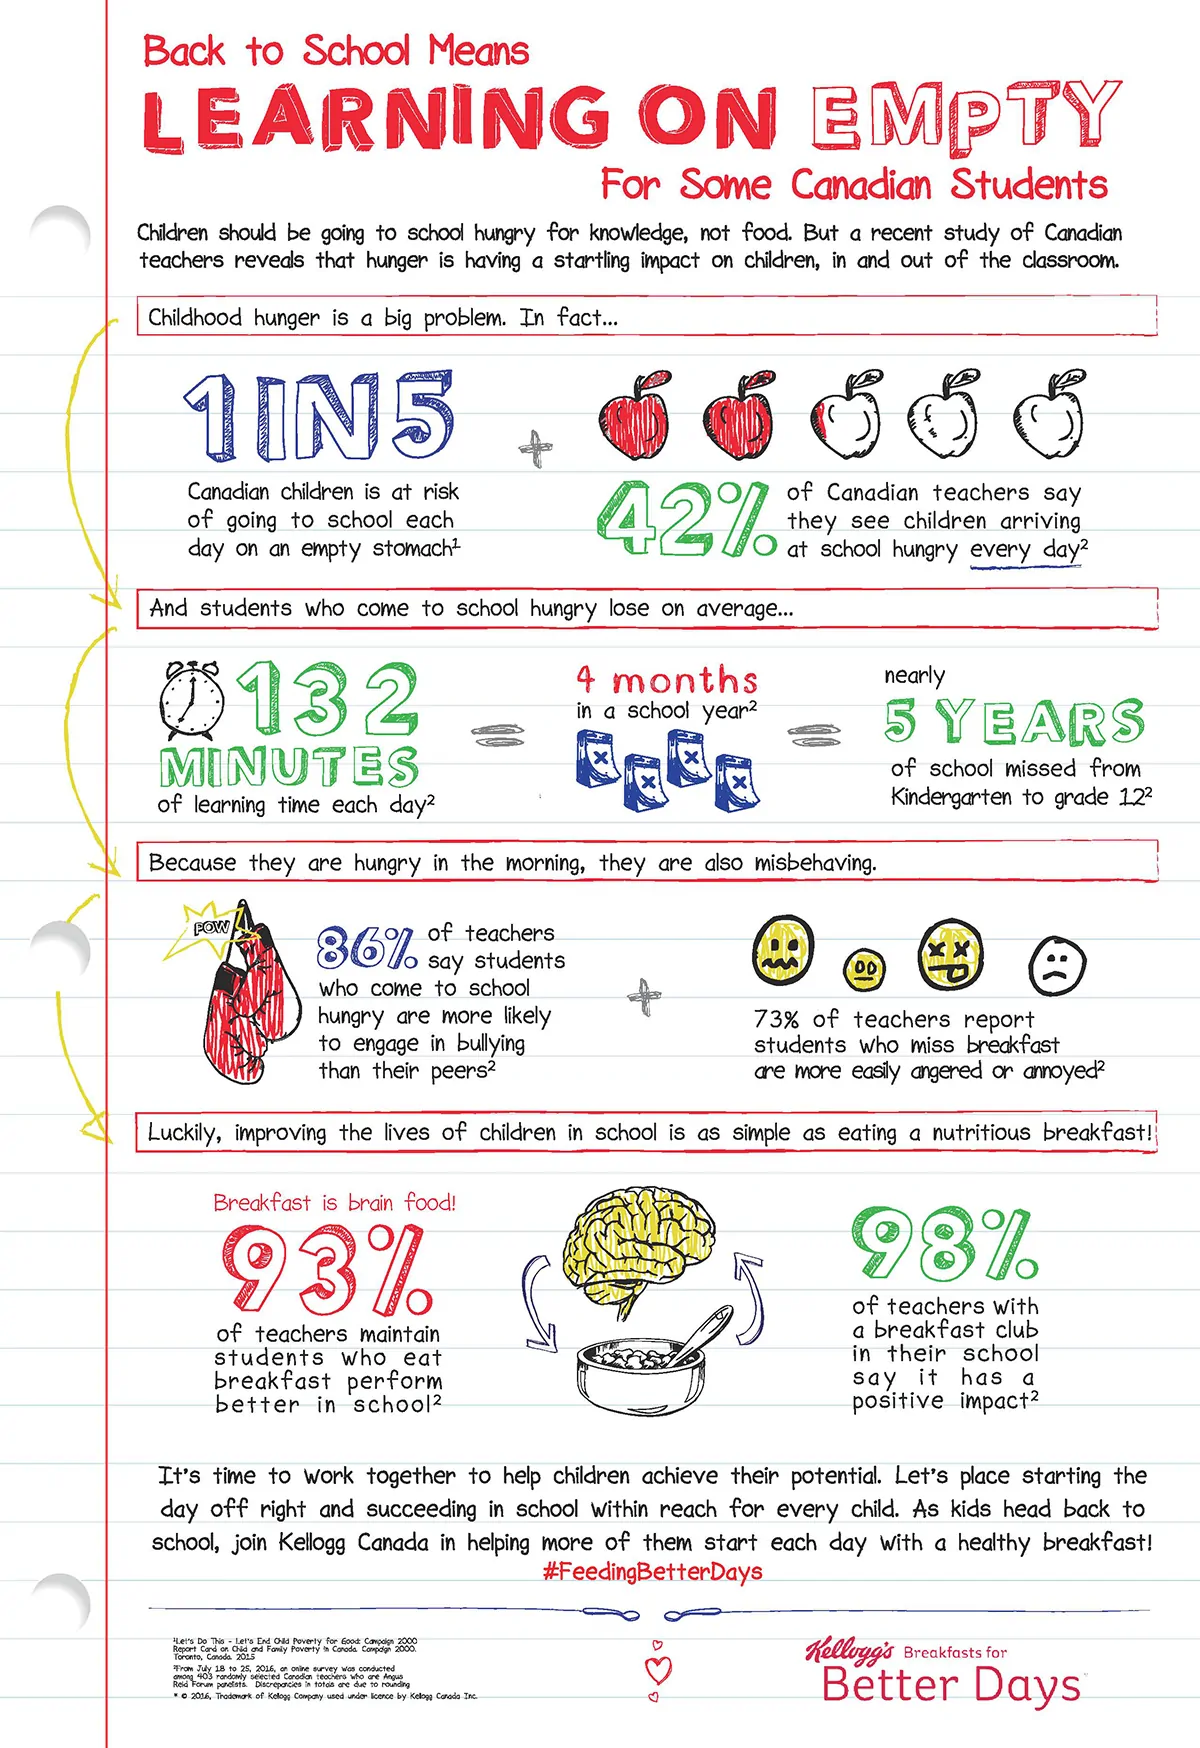 Back to School Means
LEARNING ON EMPTY
For Some Canadian Students
Children should be going to school hungry for knowledge, not food. But a recent study of Canadian
teachers reveals that hunger is having a startling impact on children, in and out of the classroom.
Childhood hunger is a big problem. In fact...
1 IN 5
Canadian children is at risk
of going to school each
day on an empty stomach1
+
42%
of Canadian teachers say
they see children arriving
at school hungry every day2
And students who come to school hungry lose on average...
132
MINUTES
of learning time each day2
=
4 months
in a school year2
=
nearly
5 YEARS
of school missed from
Kindergarten to grade 122
Because they are hungry in the morning, they are also misbehaving.
POW
86% of teachers
say students
who come to school
hungry are more likely
to engage in bullying
than their peers2
+
73% of teachers report
students who miss breakfast
are more easily angered or annoyed2
Luckily, improving the lives of children in school is as simple as eating a nutritious breakfast!
Breakfast is brain food!
93%
of teachers maintain
students who eat
breakfast perform
better in school2
98%
of teachers with
a breakfast club
in their school
say it has a
positive impact2
It's time to work together to help children achieve their potential. Let's place starting the
day off right and succeeding in school within reach for every child. As kids head back to
school, join Kellogg Canada in helping more of them start each day with a healthy breakfast!
#FeedingBetterDays
1Let's Do This - Let's End Child Poverty for Good: Campaign 2000
Report Card on Child and Family Poverty in Canada. Campaign 2000.
Toronto, Canada. 2015
2From July 18 to 25, 2016, an online survey was conducted
among 403 randomly selected Canadian teachers who are Angus
Reid Forum panelists. Discrepancies in totals are due to rounding
* © 2016, Trademark of Kellogg Company used under licence by Kellogg Canada Inc.
Kellogg's Breakfasts for
Better Days